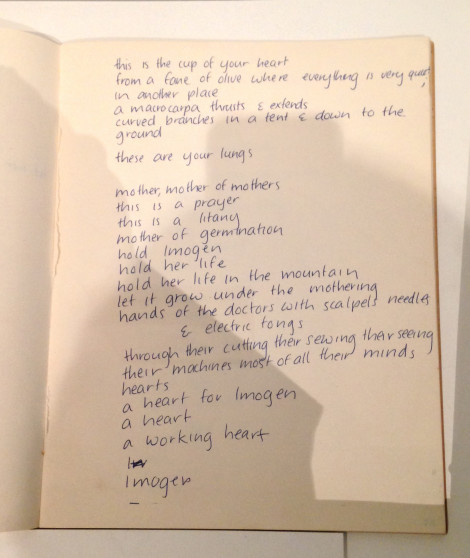 this is the cup of your heart
from a fane of olive where everything is very quiet,
in another place
a macrocarpa thruits & extends
curved branches in a tent & down to the
ground
these are your lungs
mother, mother of mothers
this is a prayer
this is a litany
mother of germination
hold Imogen
hold her life
hold her life in the mountain
let it grow under the mothering
hands of the doctors with scalpels needles
& electric tongs
through their cutting their sewing their seeing
their machines most of all their minds
hearts
a heart for Imogen
a heart
a working heart
Imogen